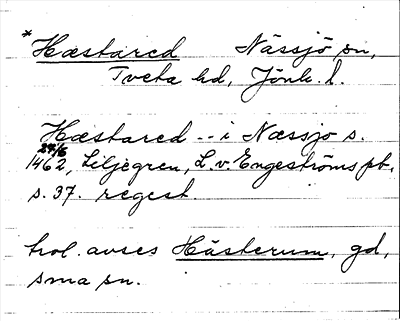 * Hæstared Nässjö sn,
Tveta hd, Jönk. l.
Hæstared -- i Næssjo s.
29/6
1462, Liljegren, L. v. Engeströms pb.
s. 37. regest.
trol. avses Hästerum, gd,
sma sn.